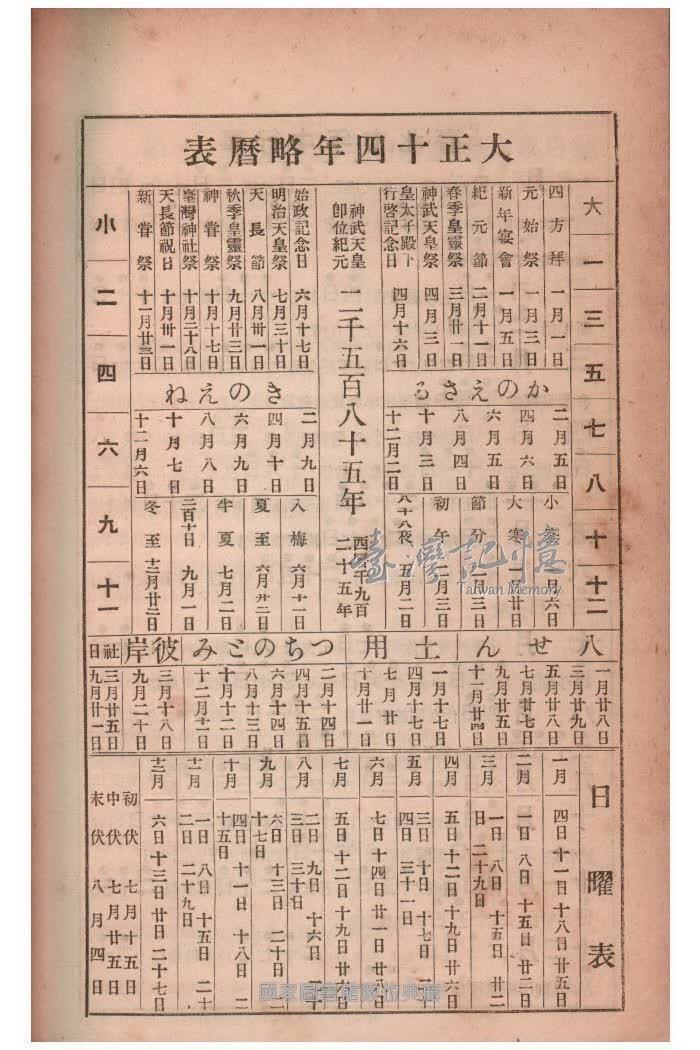 大正十四年略曆表
大 一 三 五 七 八 十 十二
四方拜 一月一日
元始祭 一月三日
新年宴會 一月五日
紀元節 二月十一日
春季皇靈祭 三月廿一日
神武天皇祭 四月三日
皇太子殿下行啓記念日 四月十六日
神武天皇即位紀元 二千五百八十五年
西曆千九百二十五年
始政記念日 六月十七日
明治天皇祭 七月三十日
天長節 八月卅一日
秋季皇靈祭 九月廿三日
神甞祭 十月十七日
臺灣神社祭 十月二十八日
天長節祝日 十月卅一日
新甞祭 十一月廿三日
小 二 四 六 九 十一
かのえさる
二月五日
四月六日
六月五日
八月四日
十月三日
十二月二日
きのえね
二月九日
四月十日
六月九日
八月八日
十月七日
十二月六日
小寒 一月六日
大寒 一月廿日
節分 二月三日
初午 二月三日
八十八夜 五月二日
入梅 六月十一日
夏至 六月廿二日
半夏 七月二日
二百十日 九月一日
冬至 十二月廿二日
八せん
一月廿八日
三月廿九日
五月廿八日
七月廿七日
九月廿五日
十一月廿四日
土用
一月十七日
四月十七日
七月廿日
十月廿一日
つちのとみ
二月十四日
四月十五日
六月十四日
八月十三日
十月十二日
十二月十一日
彼岸
三月十八日
九月二十日
社日
三月廿五日
九月廿一日
日曜表
一月 四日 十一日 十八日 廿五日
二月 一日 八日 十五日 廿二日
三月 一日 八日 十五日 廿二日 二十九日
四月 五日 十二日 十九日 廿六日
五月 三日 十日 十七日 二十四日 三十一日
六月 七日 十四日 廿一日 廿八日
七月 五日 十二日 十九日 廿六日
八月 二日 九日 十六日 二十三日 三十日
九月 六日 十三日 二十日 二十七日
十月 四日 十一日 十八日 二十五日
十一月 一日 八日 十五日 二十二日 二十九日
十二月 六日 十三日 廿日 二十七日
初伏 七月十五日
中伏 七月廿五日
末伏 八月四日
臺灣記憶
Taiwan Memory
國家圖書館數位典藏